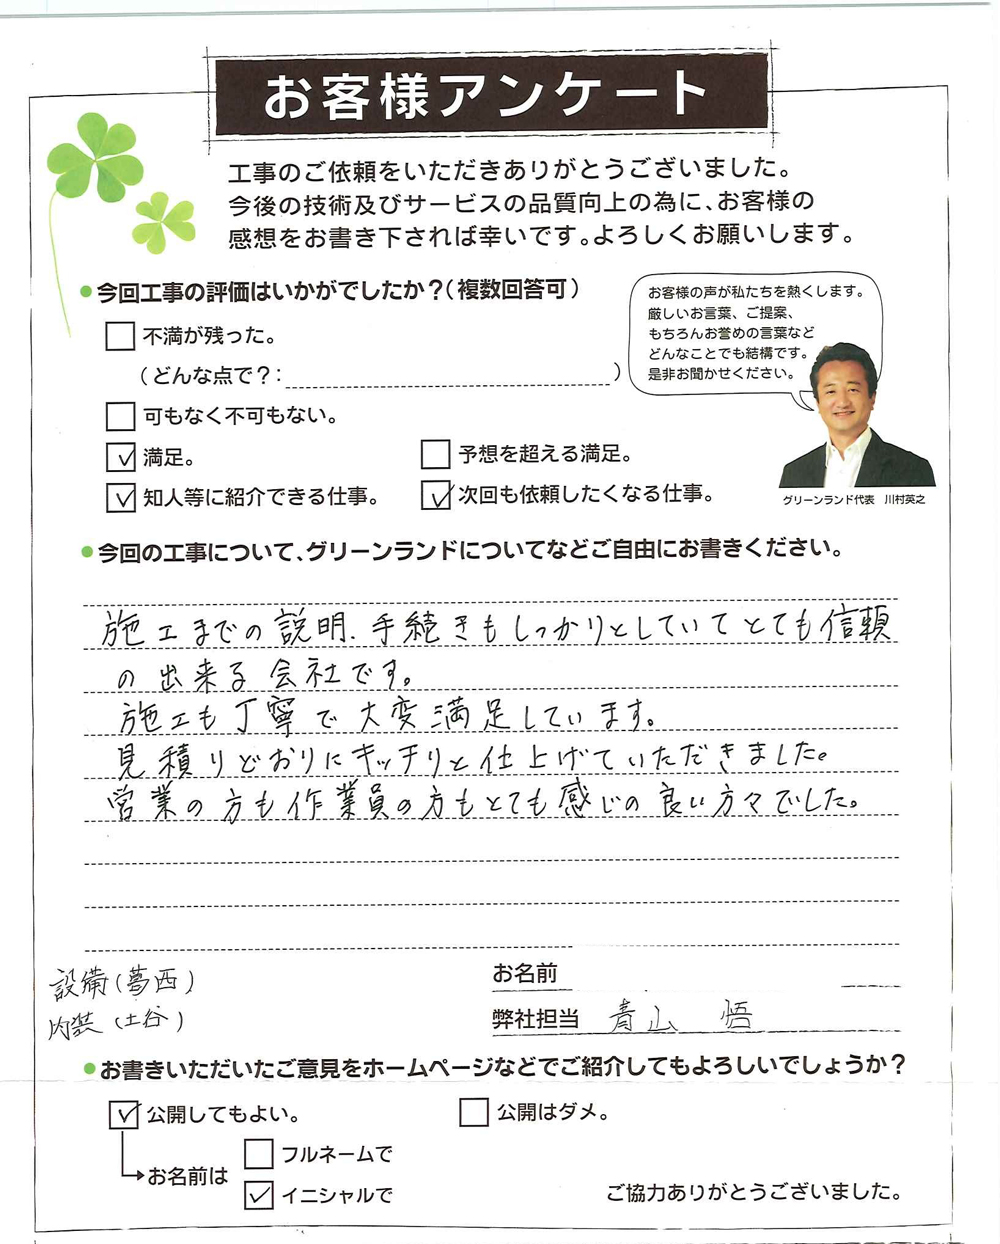 お客様アンケート
工事のご依頼をいただきありがとうございました。
今後の技術及びサービスの品質向上の為に、お客様の
感想をお書き下されば幸いです。よろしくお願いします。
●今回工事の評価はいかがでしたか?(複数回答可)
不満が残った。
(どんな点で?: )
可もなく不可もない。
満足。
予想を超える満足。
知人等に紹介できる仕事。
次回も依頼したくなる仕事。
お客様の声が私たちを熱くします。
厳しいお言葉、ご提案、
もちろんお誉めの言葉など
どんなことでも結構です。
是非お聞かせください。
グリーンランド代表 川村英之
●今回の工事について、グリーンランドについてなどご自由にお書きください。
施工までの説明、手続きもしっかりとしていてとても信頼
の出来る会社です。
施工も丁寧で大変満足しています。
見積りどおりにキッチリと仕上げていただきました。
営業の方も作業員の方もとても感じの良い方々でした。
設備(葛西)
内装(土谷)
お名前
弊社担当 青山 悟
●お書きいただいたご意見をホームページなどでご紹介してもよろしいでしょうか?
公開してもよい。
公開はダメ。
お名前は
フルネームで
イニシャルで
ご協力ありがとうございました。